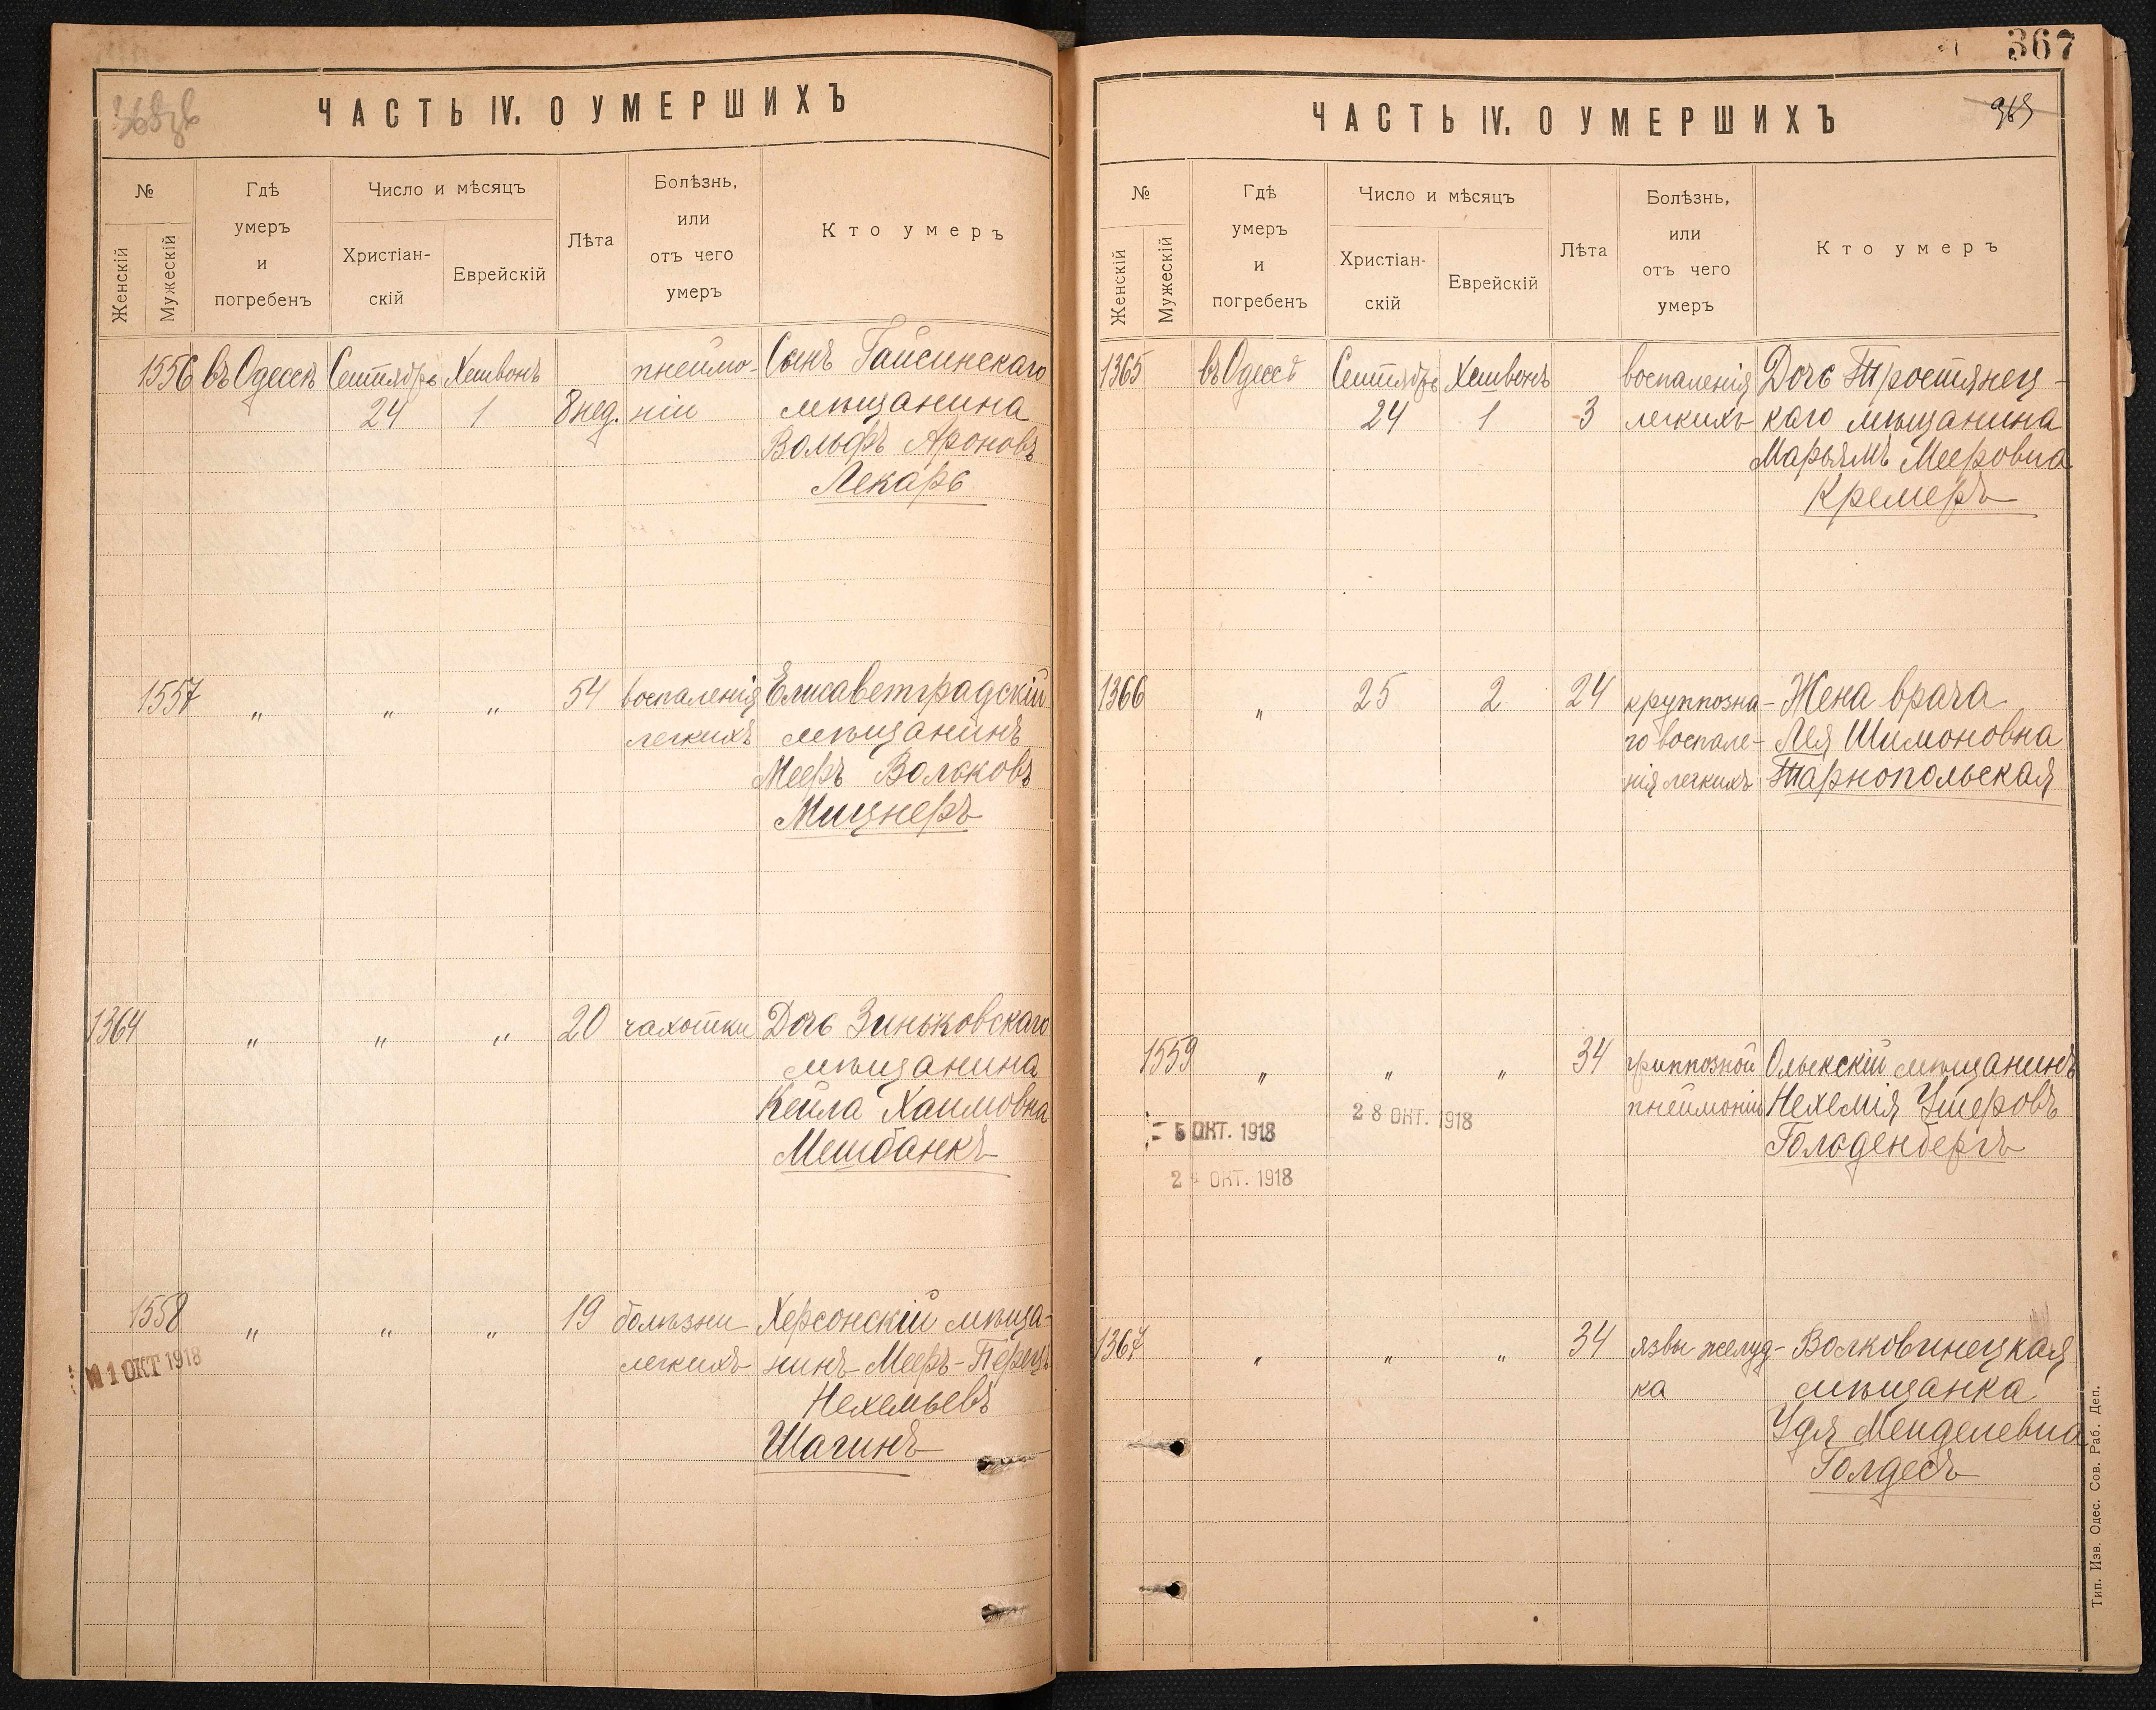 ЧАСТЬ IV. О УМЕРШИХЪ
№
Женскій
Мужескій
Гдѣ
умеръ
и
погребенъ
Число и мѣсяцъ
Христіан-
скій
Еврейскій
Лѣта
Болѣзнь,
или
отъ чего
умеръ
Кто умеръ
1556 въ Одессѣ Сентябрь Хешвонъ пнеймо- Сынъ Гайсинскаго
24 1 8 нед. ніи мѣщанина
Вольфъ Ароновъ
Лекарь
1557 „ „ „ 54 воспаленія Елисаветградскій
легкихъ мѣщанинъ
Мееръ Вольковъ
Мицнеръ
1364 „ „ „ 20 чахотки Дочь Зиньковскаго
мѣщанина
Кейла Хаимовна
Мешбанкъ
1558 „ „ „ 19 болѣзни Херсонскій мѣща-
легкихъ нинъ Мееръ-Перецъ
1 ОКТ 1918
Нехемьевъ
Шагинъ
367
ЧАСТЬ IV. О УМЕРШИХЪ
№
Женскій
Мужескій
Гдѣ
умеръ
и
погребенъ
Число и мѣсяцъ
Христіан-
скій
Еврейскій
Лѣта
Болѣзнь,
или
отъ чего
умеръ
Кто умеръ
1365 въ Одессѣ Сентябрь Хешвонъ воспаленія Дочь Тростянец-
24 1 3 легкихъ каго мѣщанина
Марьямъ Мееровна
Кремеръ
1366 „ 25 2 24 круппозна- Жена врача
го воспале- Лея Шимоновна
нія легкихъ Тарнопольская
1559 „ „ „ 34 гриппозной Олыкскій мѣщанинъ
пнеймоніи Нехемія Ушеровъ
5 ОКТ. 1918 28 ОКТ. 1918
Гольденбергъ
2 ОКТ. 1918
1367 „ „ „ 34 язвы желуд- Волковинецкая
ка мѣщанка
Удя Менделевна
Голдесъ
Тип. Изв. Одес. Сов. Раб. Деп.